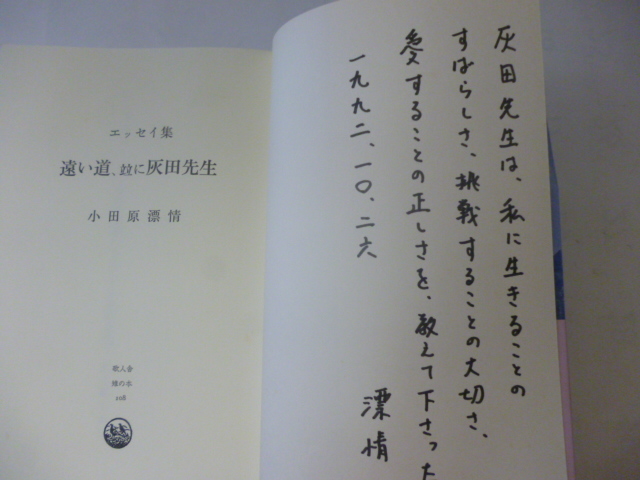 灰田先生は、私に生きることの
すばらしさ、挑戦することの大切さ、
愛することの正しさを、教えて下さった
一九九二、一〇、二六
漂情
エッセイ集
遠い道、竝に灰田先生
小田原漂情
歌人舎
雁の本
208